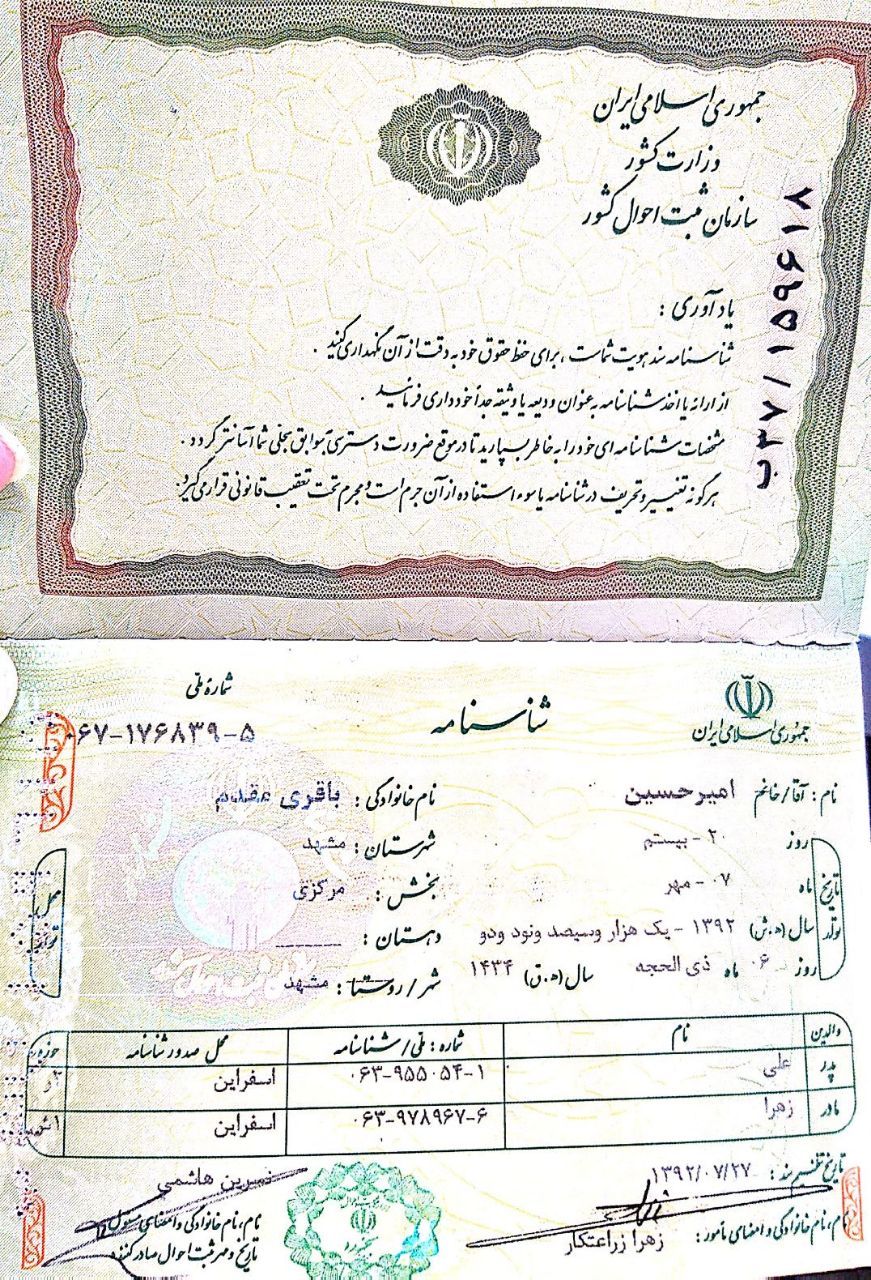 جمهوری اسلامی ایران
وزارت کشور
سازمان ثبت احوال کشور
ب۳۷/۱۵۹۶۱۸
یادآوری :
شناسنامه سند هویت شماست ، برای حفظ حقوق خود به دقت از آن نگهداری کنید .
از ارائه یا اخذ شناسنامه به عنوان ودیعه یا وثیقه جداً خودداری فرمائید .
مشخصات شناسنامه ای خود را به خاطر بسپارید تا در موقع ضرورت دسترسی به سوابق سجلی شما آسانتر گردد .
هرگونه تغییر و تحریف در شناسنامه یا سوء استفاده از آن جرم است و مجرم تحت تعقیب قانونی قرار می گیرد .
جمهوری اسلامی ایران
شناسنامه
شماره ملی
۰۶۷-۱۷۶۸۳۹-۵
نام : آقا/خانم امیرحسین نام خانوادگی : باقری مقدم
تاریخ تولد
روز ۲۰ - بیستم شهرستان : مشهد
ماه ۰۷ - مهر بخش : مرکزی
سال (ه.ش) ۱۳۹۲ - یک هزار وسیصد ونود ودو دهستان : ــــــــ
روز ۰۶ ماه ذی الحجه سال (ه.ق) ۱۴۳۴ شهر / روستا : مشهد
والدین نام شماره : ملی/شناسنامه محل صدور شناسنامه حوزه
پدر علی ۰۶۳-۹۵۵۰۵۴-۱ اسفراین
مادر زهرا ۰۶۳-۹۷۸۹۶۷-۶ اسفراین
تاریخ تنظیم سند : ۱۳۹۲/۰۷/۲۷
نام، نام خانوادگی و امضای مأمور : زهرا زراعتکار
نسرین هاشمی
نام، نام خانوادگی و امضای مسئول
تاریخ و مهر ثبت احوال صادرکننده